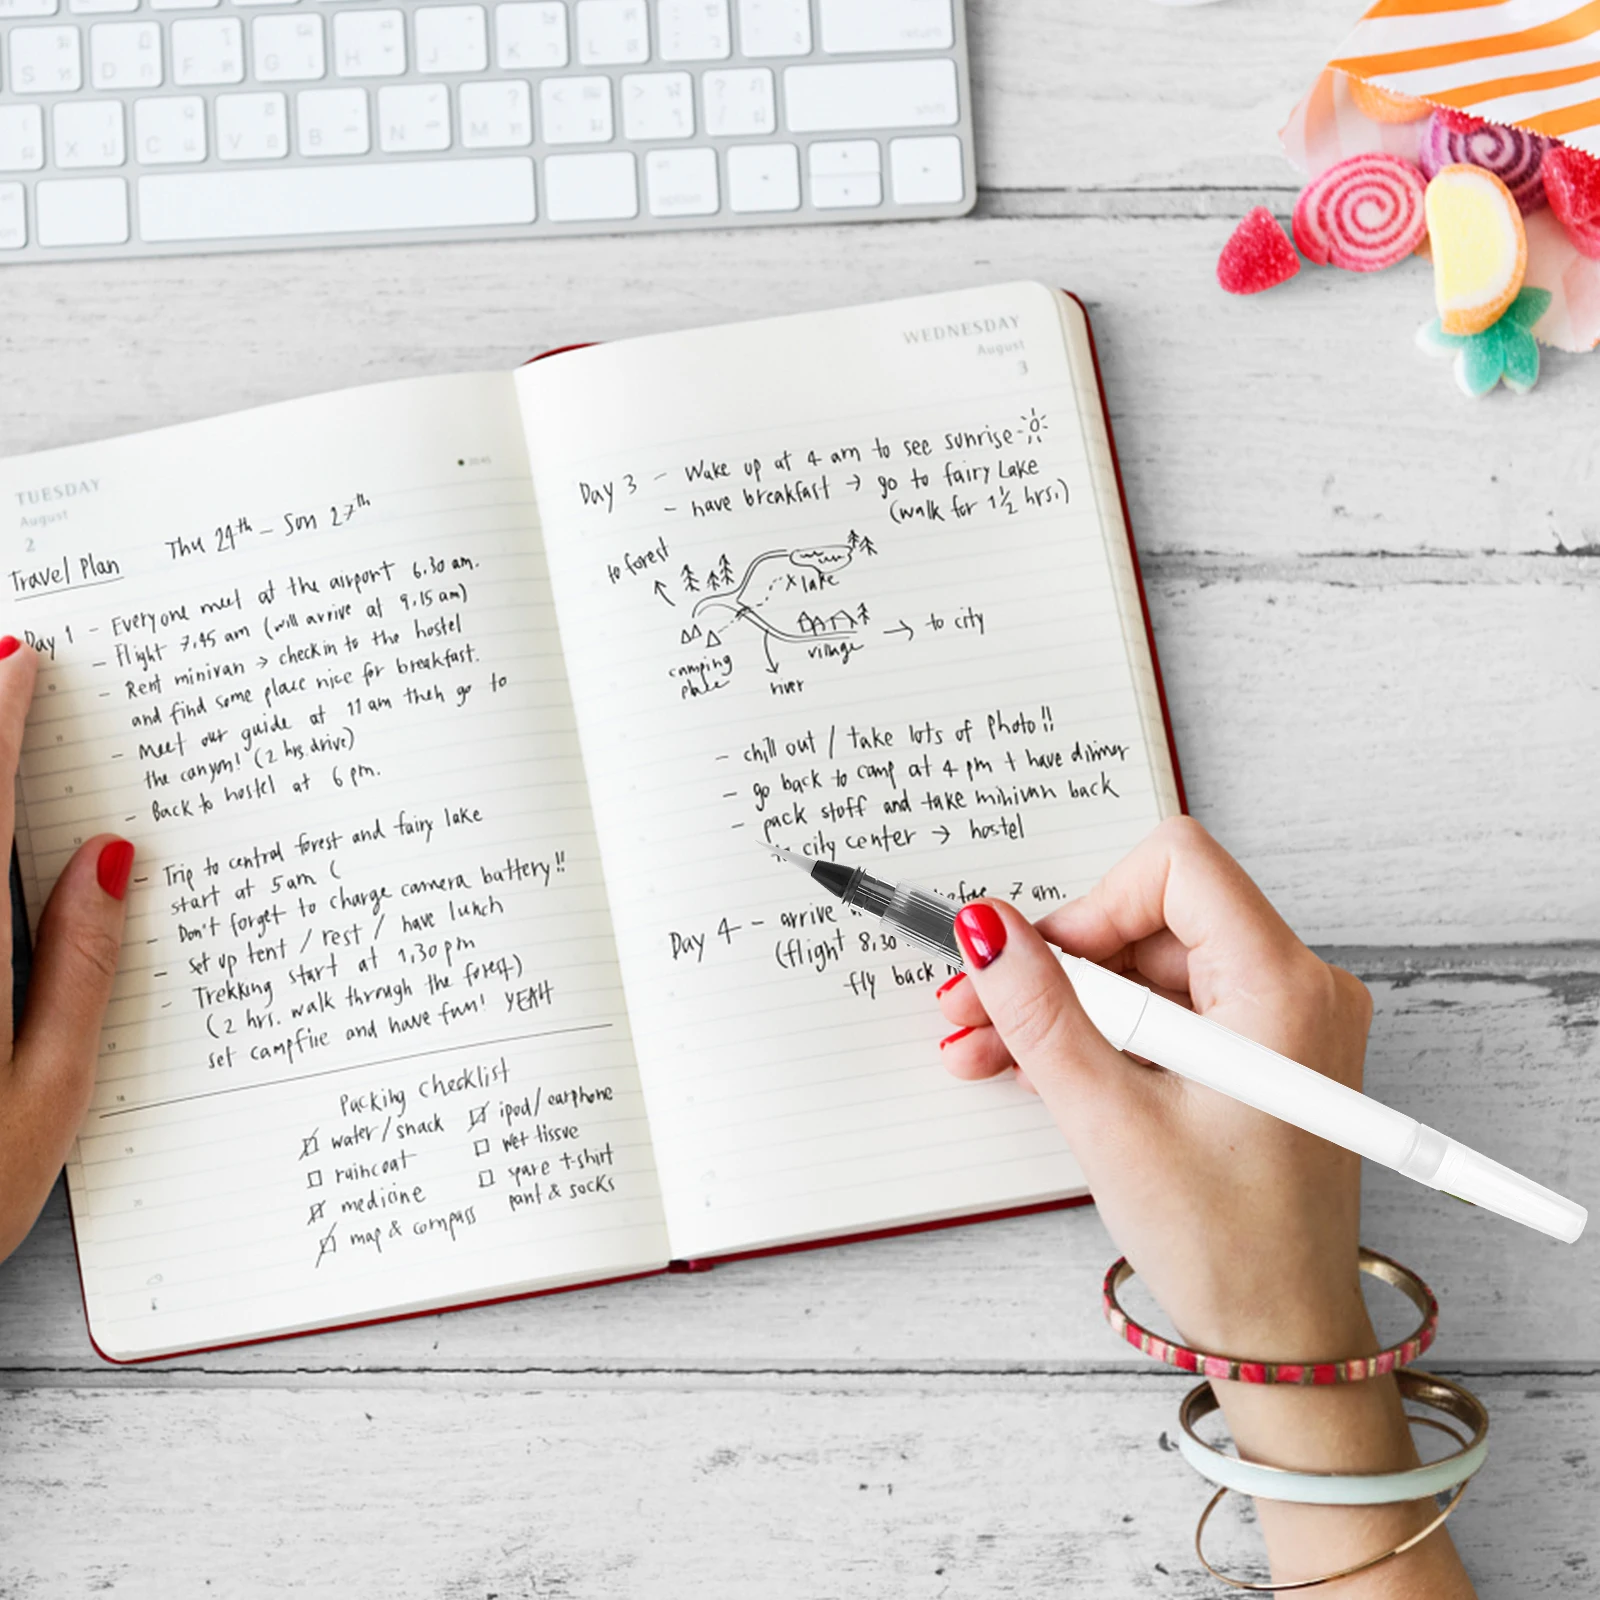 TUESDAY
August
2
Thu 24th – Sun 27th
Travel Plan
Day 1 – Everyone meet at the airport 6.30 am.
– Flight 7.45 am (will arrive at 9.15 am)
– Rent minivan → check in to the hostel
and find some place nice for breakfast.
– Meet our guide at 11 am then go to
the canyon! (2 hrs. drive)
– Back to hostel at 6 pm.
– Trip to central forest and fairy lake
start at 5 am (
– Don't forget to charge camera battery!!
– set up tent / rest / have lunch
– Trekking start at 1.30 pm
(2 hrs. walk through the forest)
set campfire and have fun! YEAH
Packing checklist
water/snack
raincoat
medicine
map & compass
ipod/earphone
wet tissue
spare t-shirt
pant & socks
WEDNESDAY
August
3
Day 3 – Wake up at 4 am to see sunrise
– have breakfast → go to fairy Lake
(walk for 1½ hrs.)
to forest
x lake
→ to city
village
camping
place
river
– chill out / take lots of photo!!
– go back to camp at 4 pm + have dinner
– pack stoff and take minivan back
city center → hostel
Day 4 – arrive 7 am.
(flight 8.30
fly back
S
D
F
G
H
J
K
L
return
X
C
V
B
N
M
shift
option